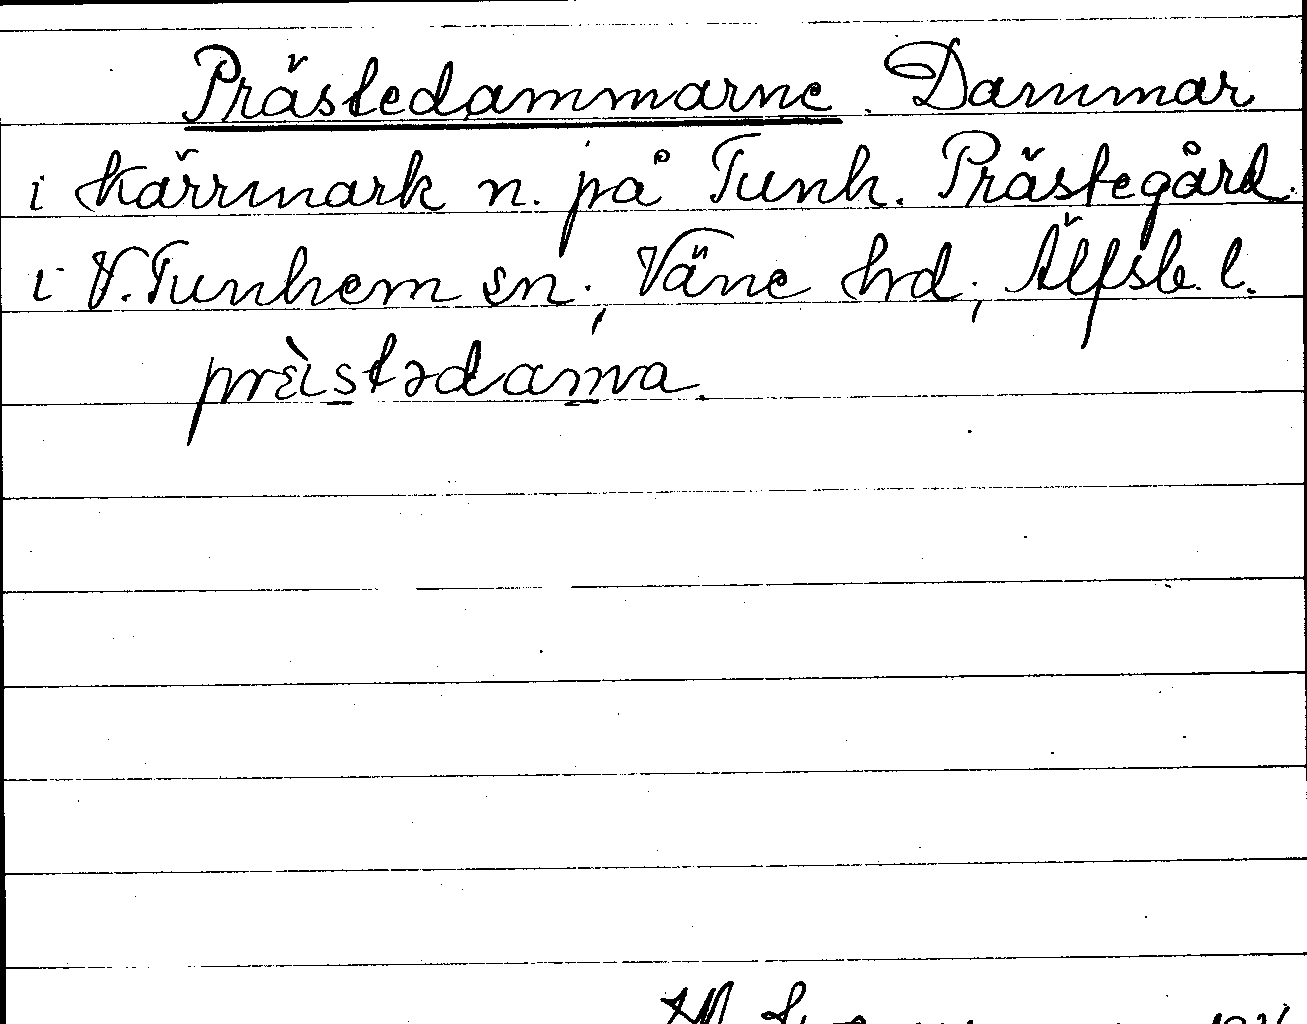 Prästedammarne. Dammar
i kärrmark n. på Tunh. Prästegård.
i V. Tunhem sn; Väne hd; Älfsb. l.
prɛ̀istədamna.